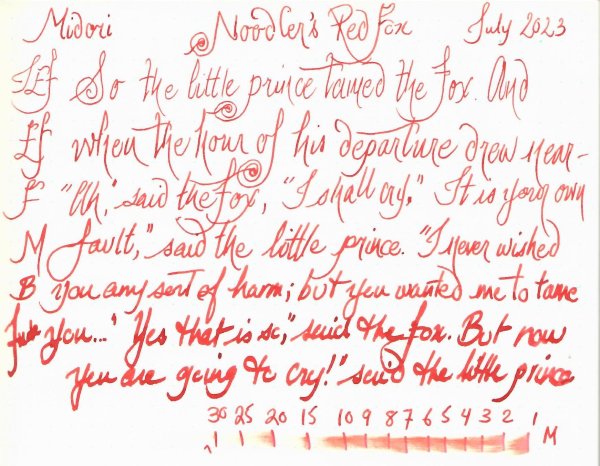 Midori Noodler's Red Fox July 2023
EEF So the little prince tamed the fox. And
EF when the hour of his departure drew near-
F "Ah," said the Fox, "I shall cry." It is your own
M fault," said the little prince. "I never wished
B you any sort of harm; but you wanted me to tame
you...' Yes that is so," said the fox. But now
you are going to cry!" said the little prince
30 25 20 15 10 9 8 7 6 5 4 3 2 1
M